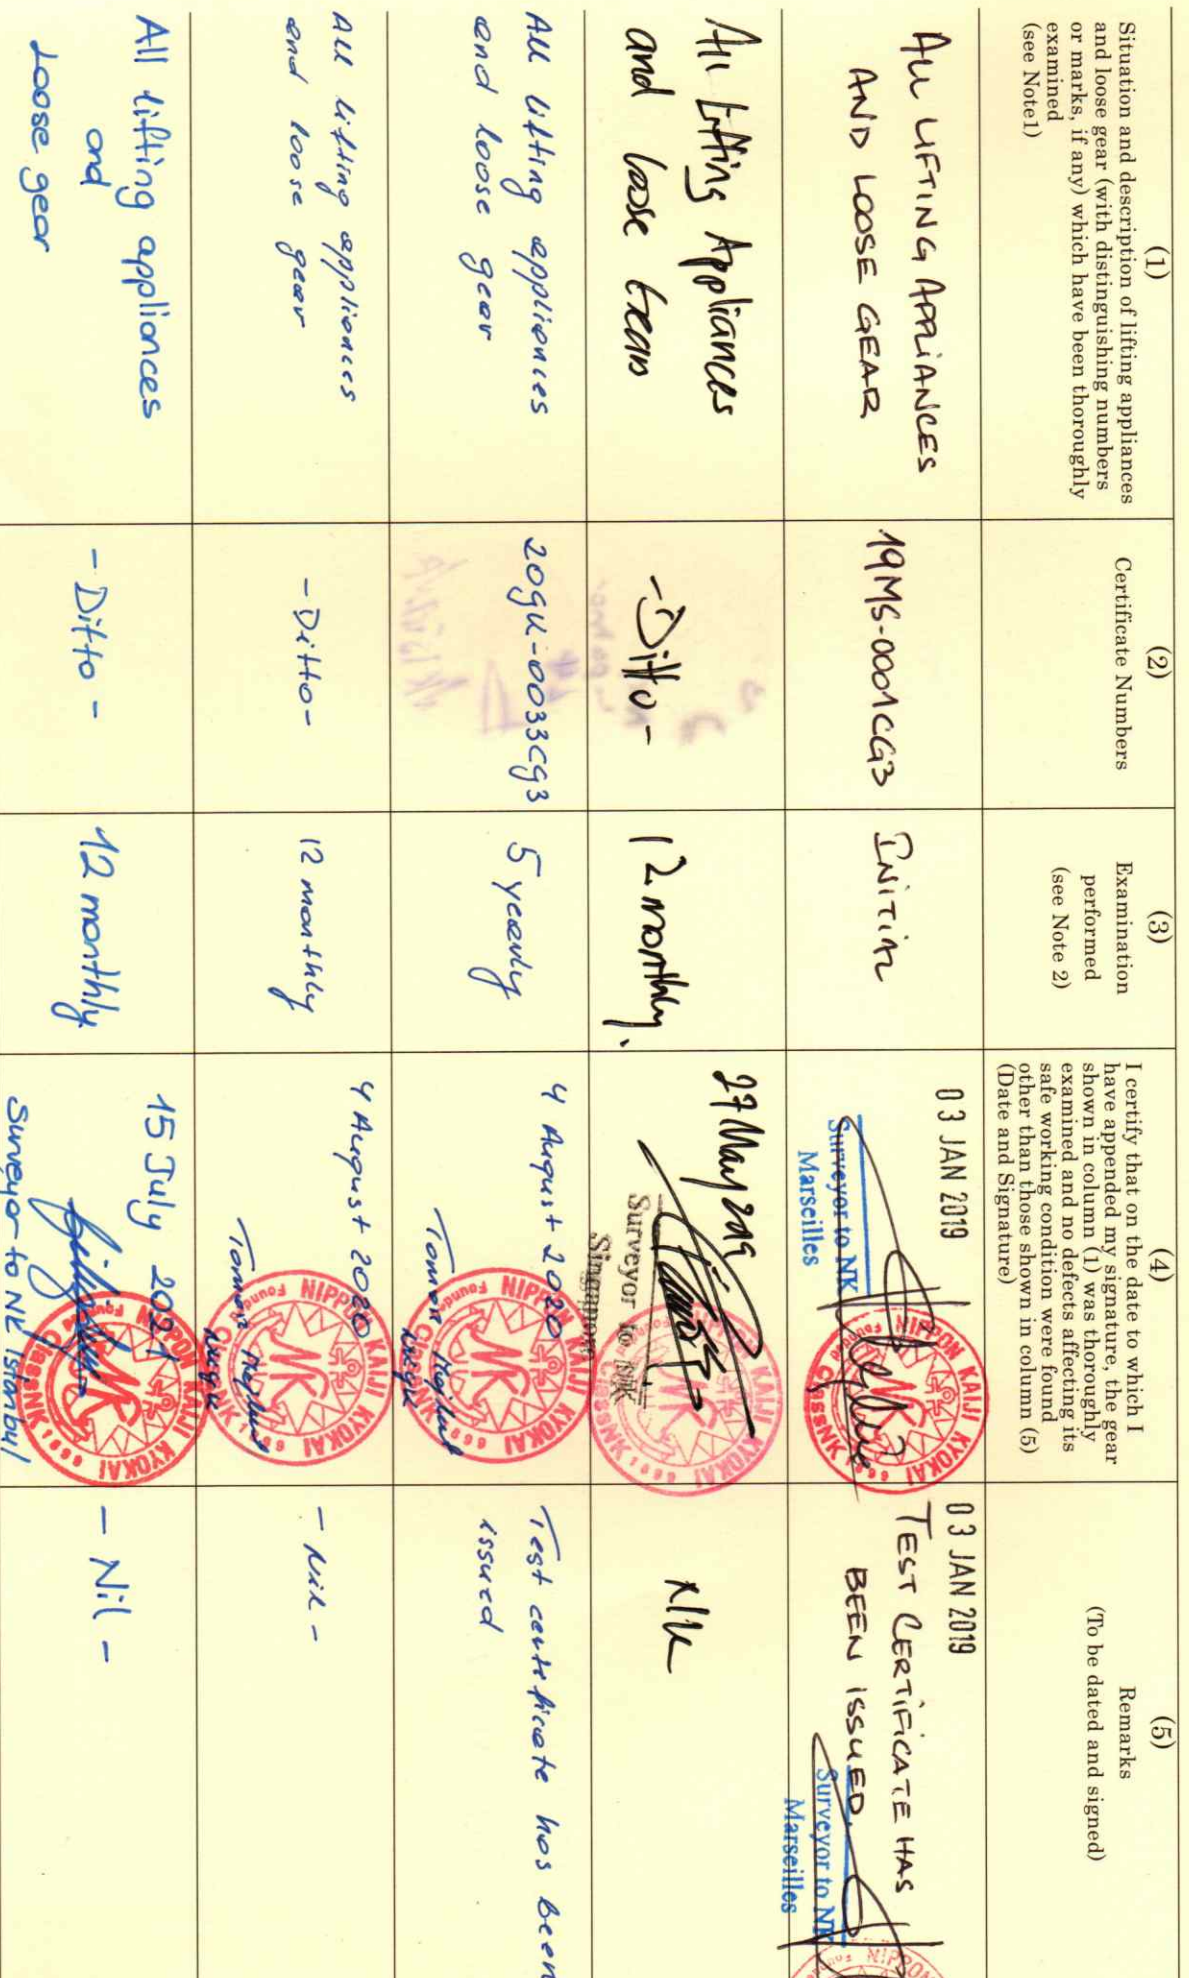 (1)
Situation and description of lifting appliances
and loose gear (with distinguishing numbers
or marks, if any) which have been thoroughly
examined
(see Note1)
(2)
Certificate Numbers
(3)
Examination
performed
(see Note 2)
(4)
I certify that on the date to which I
have appended my signature, the gear
shown in column (1) was thoroughly
examined and no defects affecting its
safe working condition were found
other than those shown in column (5)
(Date and Signature)
(5)
Remarks
(To be dated and signed)
ALL LIFTING APPLIANCES
AND LOOSE GEAR
19MS-0001CG3
INITIAL
03 JAN 2019
Surveyor to NK
Marseilles
NIPPON KAIJI KYOKAI
ClassNK
03 JAN 2019
TEST CERTIFICATE HAS
BEEN ISSUED.
Surveyor to NK
Marseilles
NIPPON
All Lifting Appliances
and loose
-Ditto-
12 monthly.
27 May 2019
Surveyor to NK
Singapore
KAIJI KYOKAI
ClassNK 1899
All lifting appliances
and loose gear
20GU-0033CG3
5 yearly
4 August 2020
NIPPON KAIJI KYOKAI
Test certificate has been
issued
All lifting appliances
and loose gear
-Ditto-
12 monthly
4 August 2020
NIPPON KAIJI KYOKAI
- Nil -
All lifting appliances
and
Loose gear
- Ditto -
12 monthly
15 July 2021
NIPPON KAIJI KYOKAI
ClassNK 1899
Surveyor to NK Istanbul
- Nil -